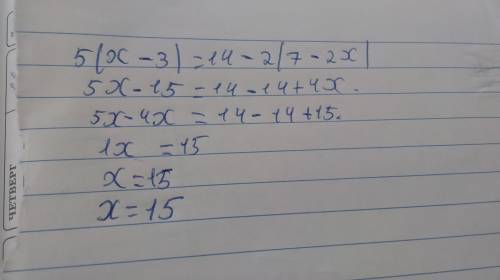 5(x-3)=14-2(7-2x)
5x-15=14-14+4x.
5x-4x=14-14+15.
1x=15
x=15
x=15
ЧЕТВЕРГ